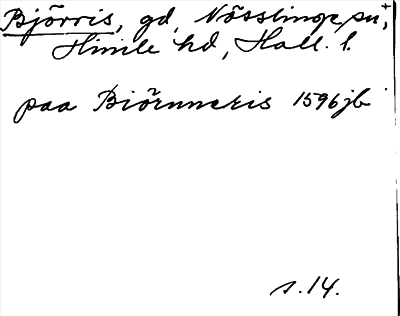 Bjórris, gd, Nösslinge sn,+
Himle hd, Hall. l.
paa Biörnneris 1596 jb
s. 14.